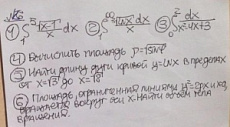 1) ∫₁⁵ √(x-1)/x dx 2) ∫₀^∞ dx 3) ∫₀² dx/(x²-4x+3)
4) Вычислить площадь ρ=15
5) Найти длину дуги кривой y=lnx в пределах
от x=√3 до x=√8
6) Площадь, ограниченная линиями y²=
вращается вокруг оси x. Найти объём тела
вращения.